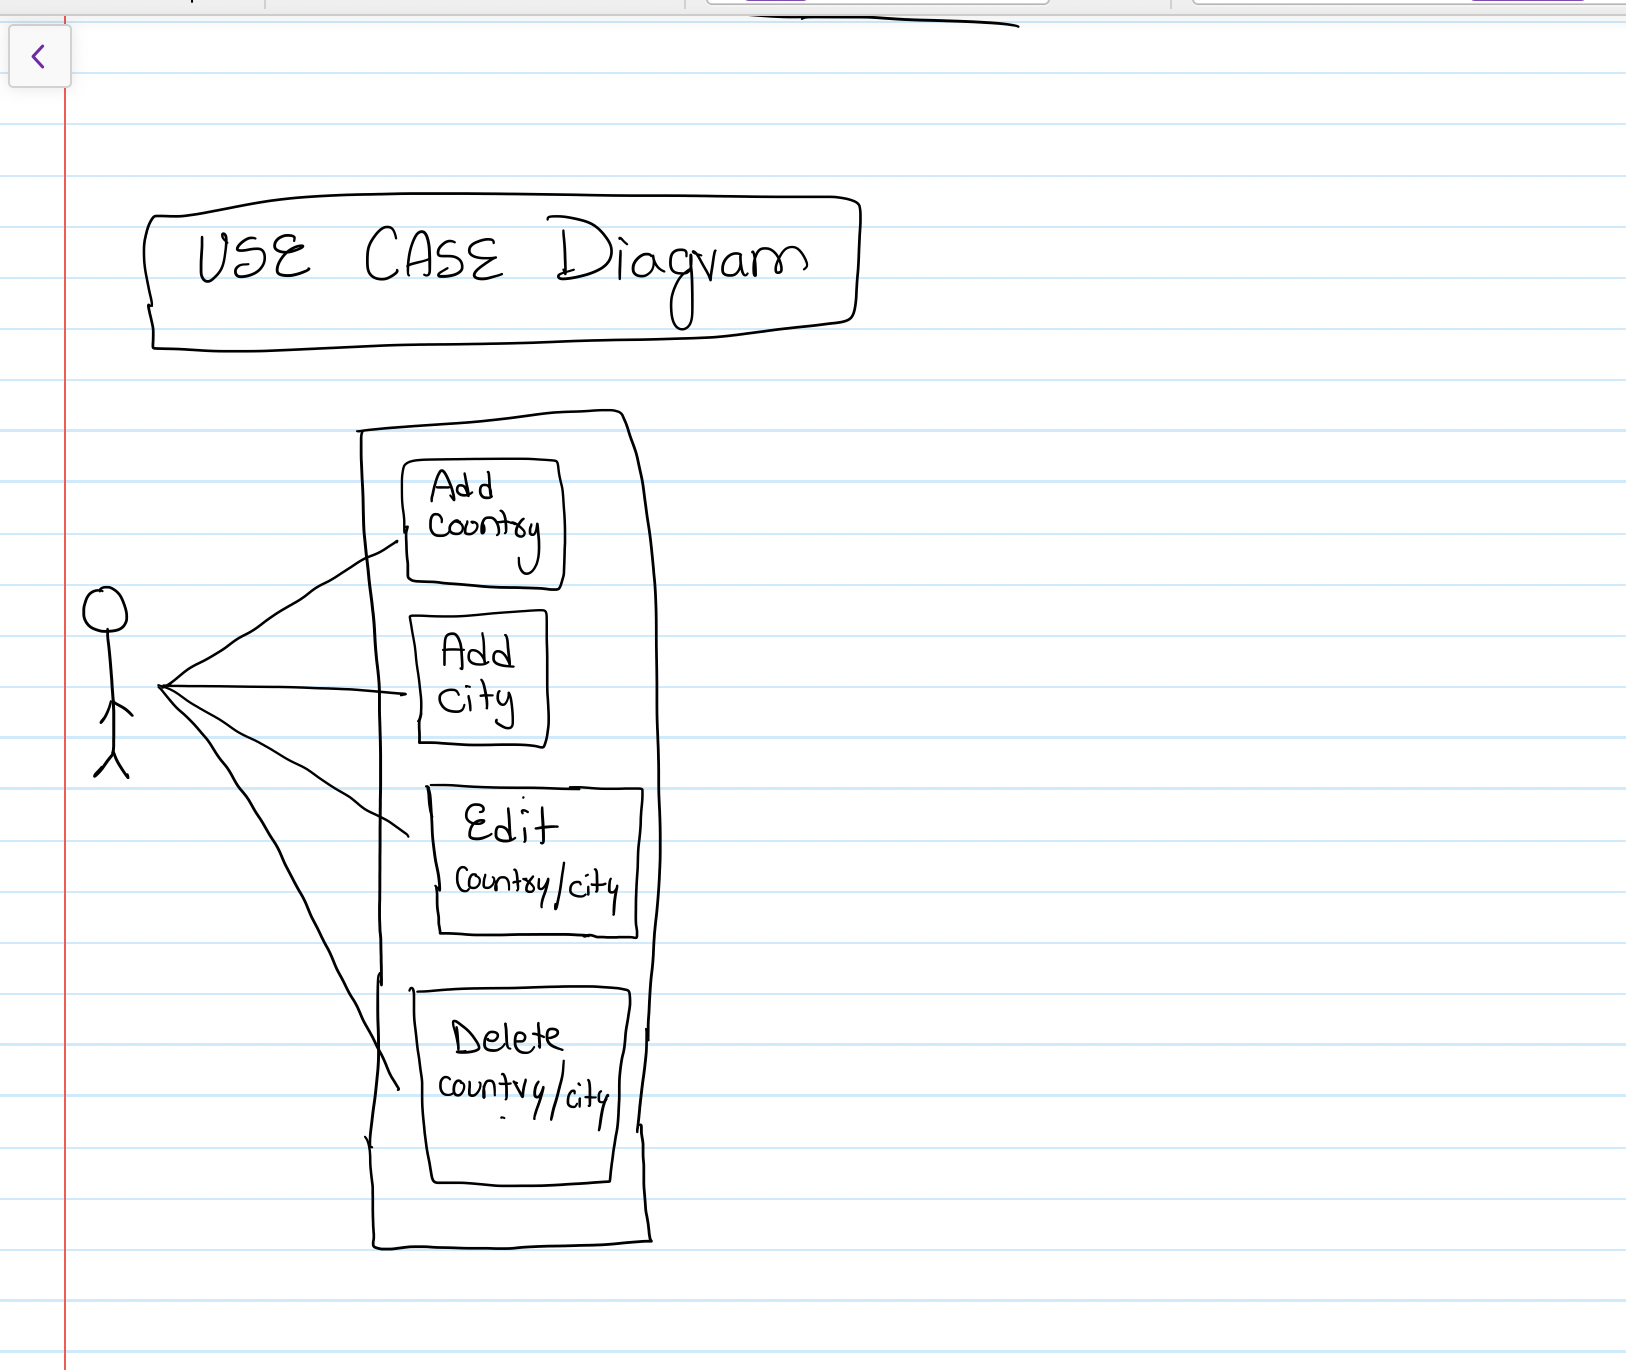 USE CASE Diagram
Add
Country
Add
city
Edit
Country/city
Delete
country/city